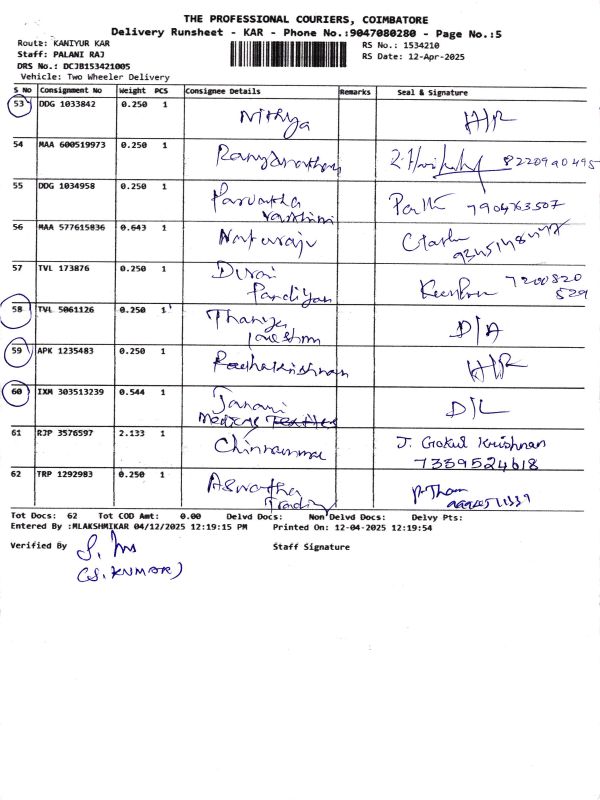 THE PROFESSIONAL COURIERS, COIMBATORE
Delivery Runsheet - KAR - Phone No.:9047080280 - Page No.:5
Route: KANIYUR KAR
RS No.: 1534210
Staff: PALANI RAJ
RS Date: 12-Apr-2025
DRS No.: DCJB153421005
Vehicle: Two Wheeler Delivery
S No Consignment No Weight PCS Consignee Details Remarks Seal & Signature
53 DDG 1033842 0.250 1 Nithya H/R
54 MAA 600519973 0.250 1 8220990495
55 DDG 1034958 0.250 1 Parvatha 7904763507
56 MAA 577615836 0.643 1 Nataraju
57 TVL 173876 0.250 1 Durai Pandiyan 7200820 529
58 TVL 5061126 0.250 1 Thanga D/A
59 APK 1235483 0.250 1 Radhakrishnan H/R
60 IXM 303513239 0.544 1 Janani Medical D/L
61 RJP 3576597 2.133 1 J. Gokul Krishnan
7339524618
62 TRP 1292983 0.250 1 Aswatha
Tot Docs: 62 Tot COD Amt: 0.00 Delvd Docs: Non Delvd Docs: Delvy Pts:
Entered By :MLAKSHMIKAR 04/12/2025 12:19:15 PM Printed On: 12-04-2025 12:19:54
Verified By Staff Signature
(S. KUMAR)